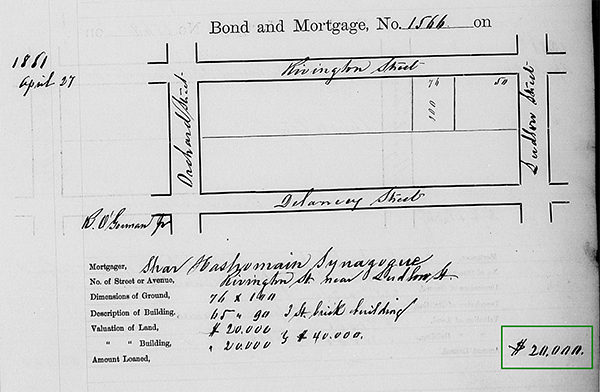 Bond and Mortgage, No. 1566 on
1861
April 27
Rivington Street
76
50
100
Orchard Street
Ludlow Street
Delancey Street
R. O'Gorman Jr
Mortgager, Shar Hashomain Synagogue
No. of Street or Avenue, Rivington St. near Ludlow St.
Dimensions of Ground, 76 x 100
Description of Building, 65 " 90 3 St. brick building
Valuation of Land, $ 20.000
" " Building, " 20.000 } $ 40.000.
Amount Loaned, $ 20,000.